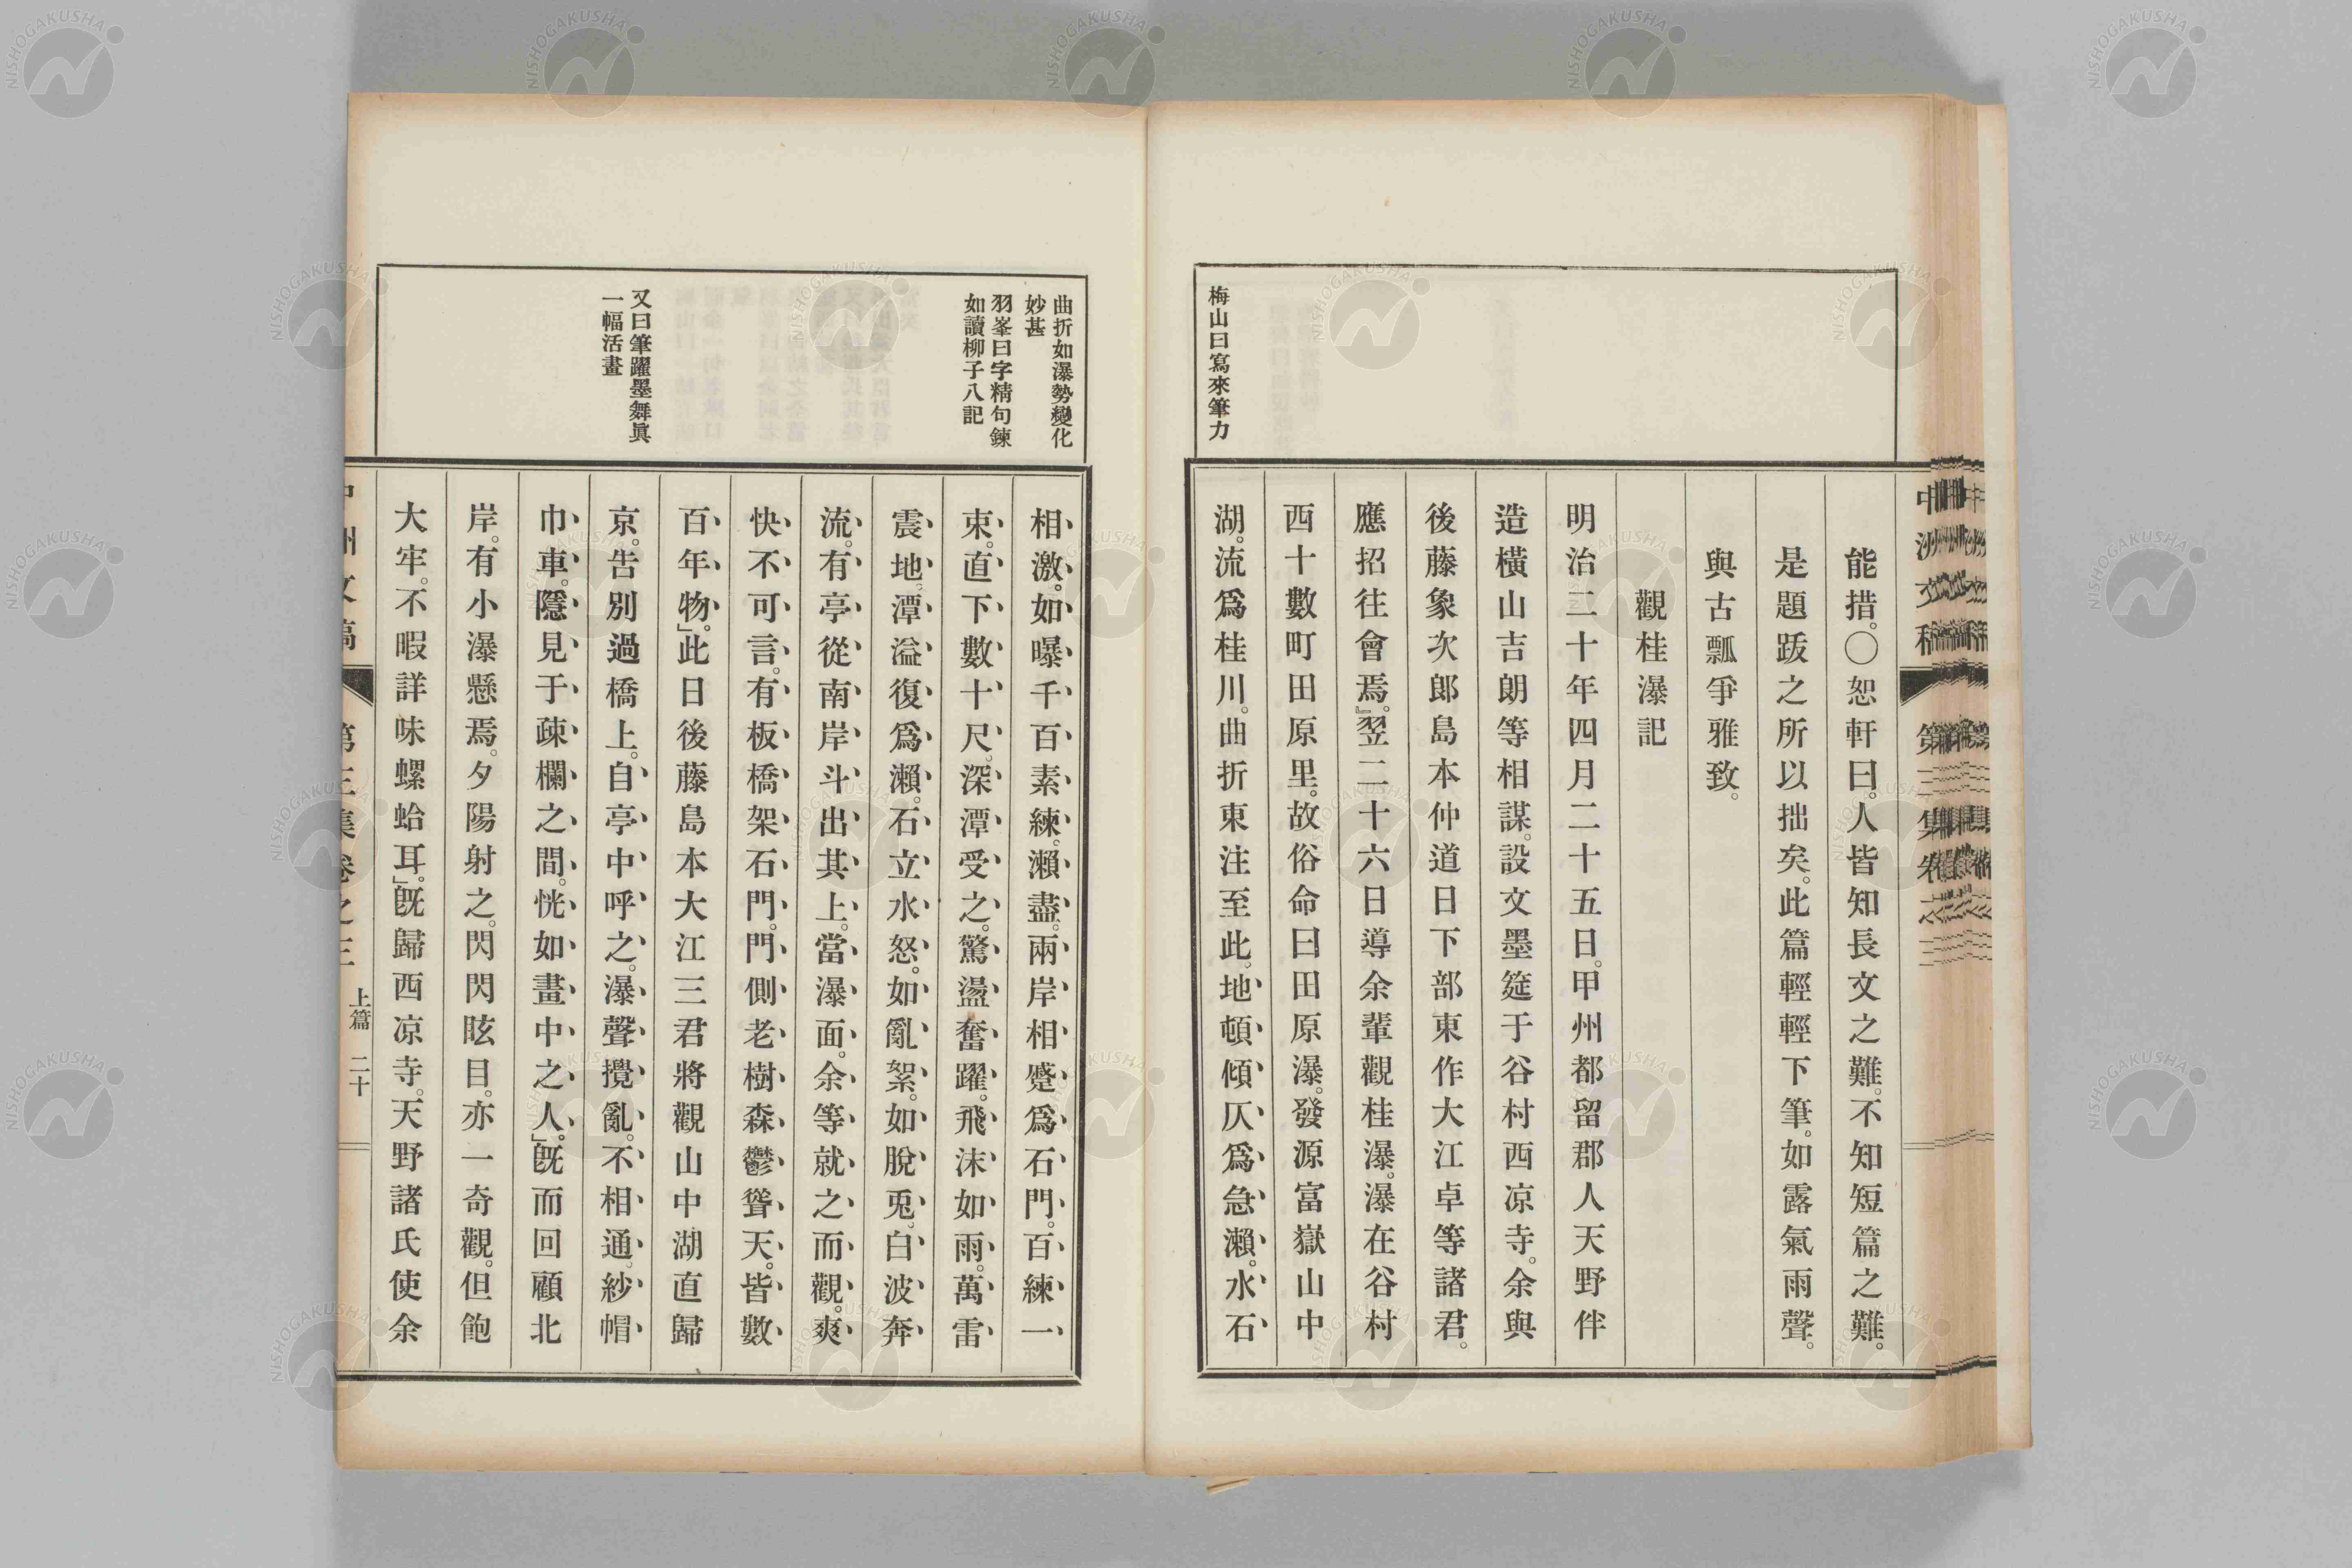 能措。○恕軒曰。人皆知長文之難。不知短篇之難。
是題跋之所以拙矣。此篇輕輕下筆。如露氣雨聲。
與古瓢爭雅致。
觀桂瀑記
明治二十年四月二十五日。甲州都留郡人天野伴
造橫山吉朗等相謀。設文墨筵于谷村西凉寺。余與
後藤象次郎島本仲道日下部東作大江卓等諸君。
應招往會焉。』翌二十六日導余輩觀桂瀑。瀑在谷村
西十數町田原里。故俗命曰田原瀑。發源富嶽山中
湖。流爲桂川。曲折東注至此。地頓傾仄爲急瀨。水石
梅山曰寫來筆力
曲折如瀑勢變化
妙甚
羽峯曰字精句鍊
如讀柳子八記
又曰筆躍墨舞眞
一幅活畫
相激。如曝千百素練。瀨盡。兩岸相蹙爲石門。百練一
束。直下數十尺。深潭受之。驚盪奮躍。飛沫如雨。萬雷
震地。潭溢復爲瀨。石立水怒。如亂絮。如脫兎。白波奔
流。有亭從南岸斗出其上。當瀑面。余等就之而觀。爽
快不可言。有板橋架石門。門側老樹森鬱聳天。皆數
百年物。」此日後藤島本大江三君將觀山中湖直歸
京。告別過橋上。自亭中呼之。瀑聲攪亂。不相通。紗帽
巾車。隱見于疎欄之間。恍如畫中之人。」旣而回顧北
岸。有小瀑懸焉。夕陽射之。閃閃眩目。亦一奇觀。但飽
大牢。不暇詳味螺蛤耳。」旣歸西凉寺。天野諸氏使余
上篇 二十
NISHOGAKUSHA